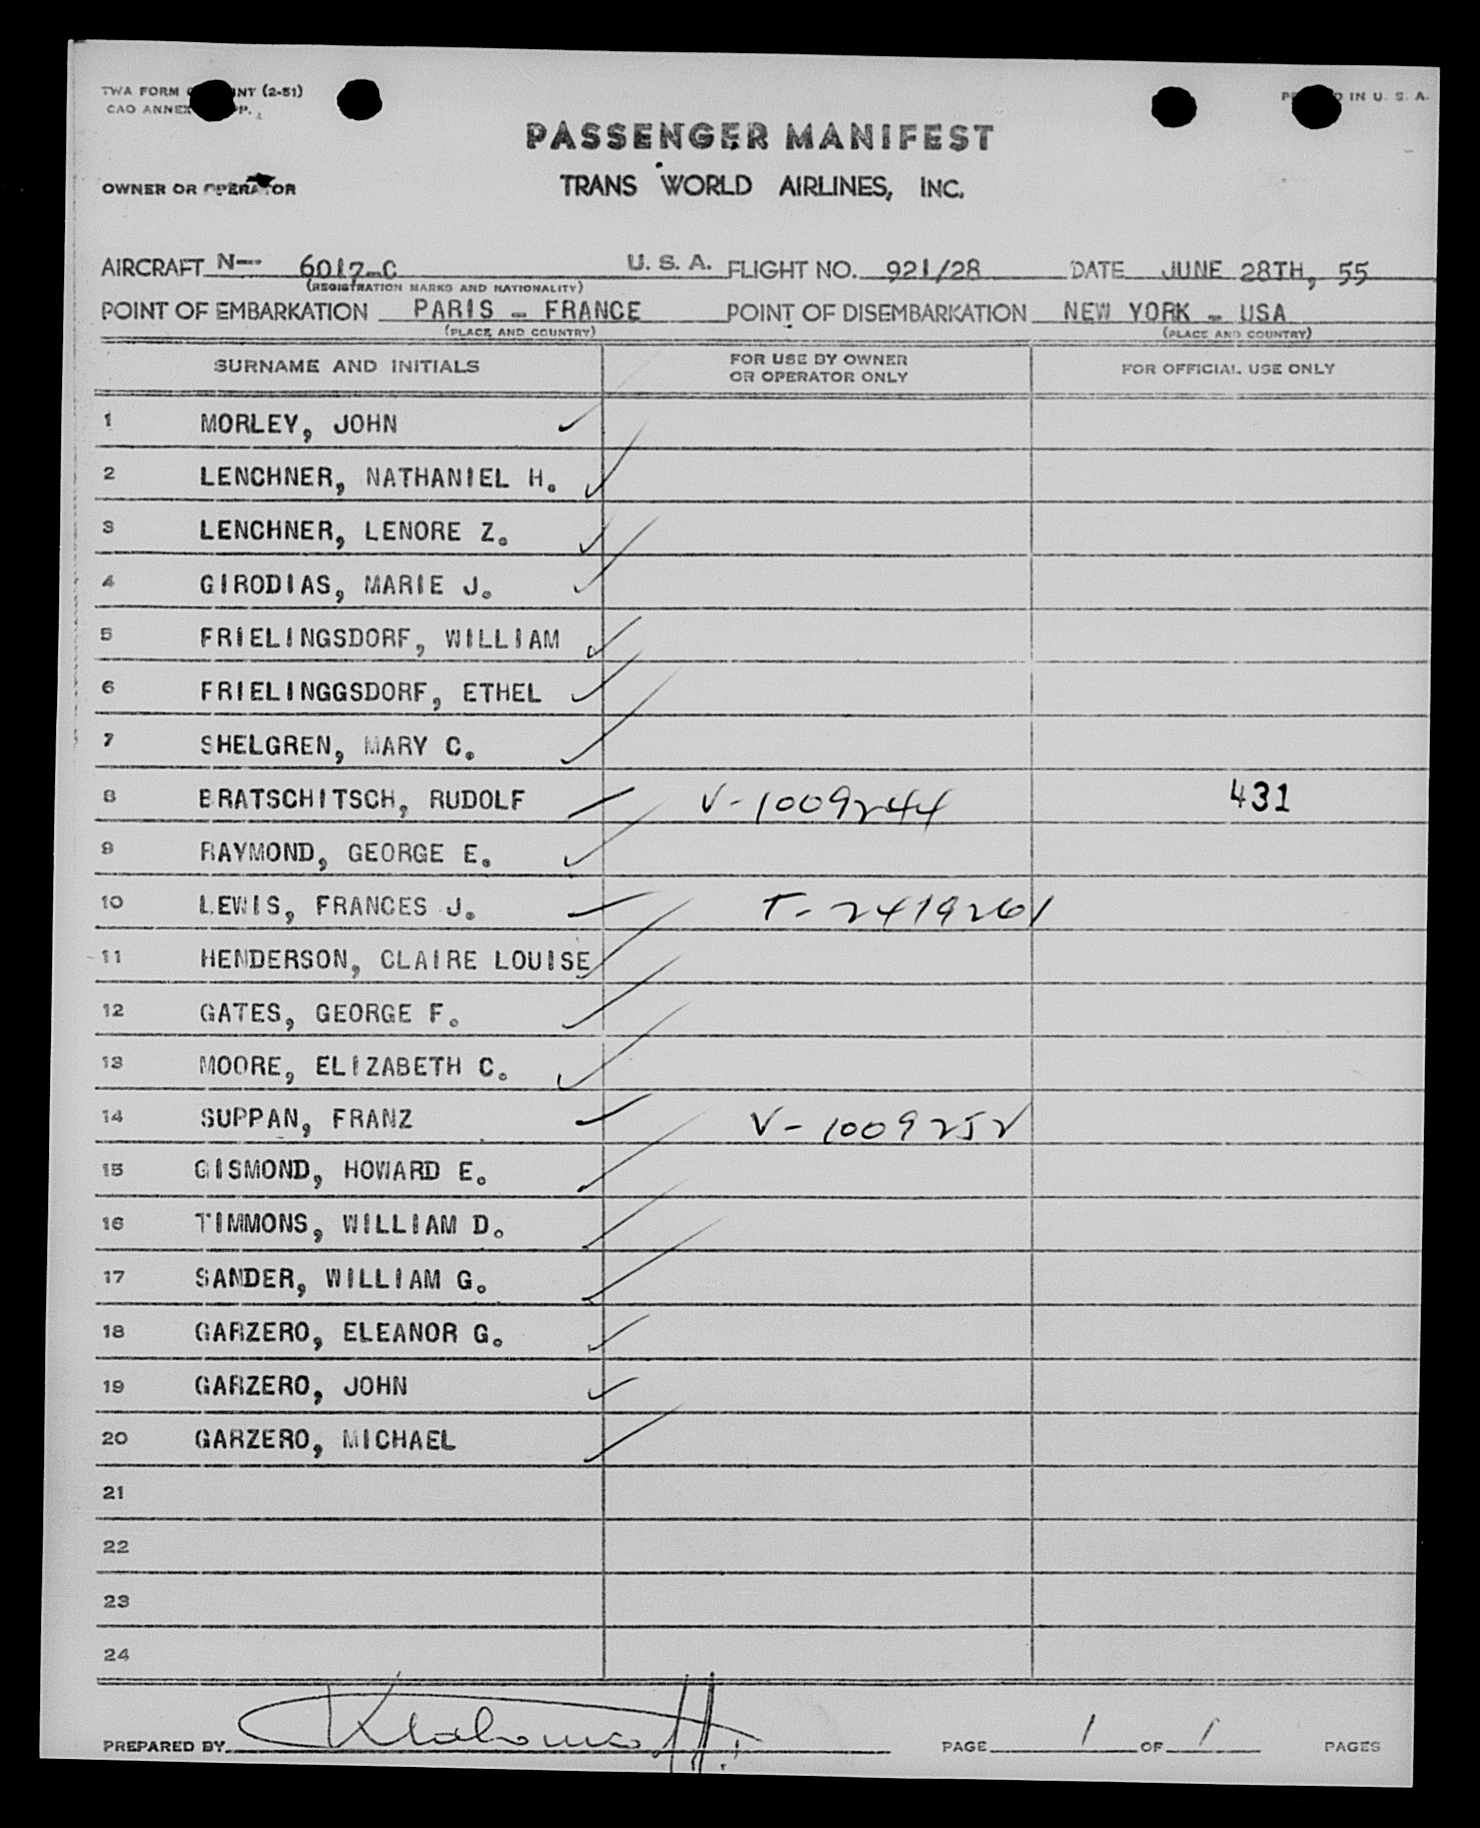 TWA FORM NT (2-51)
CAO ANNEX P. IN U. S. A.
PASSENGER MANIFEST
OWNER OR OPERATOR TRANS WORLD AIRLINES, INC.
AIRCRAFT N-- 6017-C U. S. A. FLIGHT NO. 921/28 DATE JUNE 28TH, 55
(REGISTRATION MARKS AND NATIONALITY)
POINT OF EMBARKATION PARIS - FRANCE POINT OF DISEMBARKATION NEW YORK - USA
(PLACE AND COUNTRY) (PLACE AND COUNTRY)
SURNAME AND INITIALS FOR USE BY OWNER OR OPERATOR ONLY FOR OFFICIAL USE ONLY
1 MORLEY, JOHN ✓
2 LENCHNER, NATHANIEL H. ✓
3 LENCHNER, LENORE Z. ✓
4 GIRODIAS, MARIE J. ✓
5 FRIELINGSDORF, WILLIAM ✓
6 FRIELINGGSDORF, ETHEL ✓
7 SHELGREN, MARY C. ✓
8 BRATSCHITSCH, RUDOLF ✓ V-1009244 431
9 RAYMOND, GEORGE E. ✓
10 LEWIS, FRANCES J. ✓ T-2419261
11 HENDERSON, CLAIRE LOUISE ✓
12 GATES, GEORGE F. ✓
13 MOORE, ELIZABETH C. ✓
14 SUPPAN, FRANZ ✓ V-1009252
15 GISMOND, HOWARD E. ✓
16 TIMMONS, WILLIAM D. ✓
17 SANDER, WILLIAM G. ✓
18 GARZERO, ELEANOR G. ✓
19 GARZERO, JOHN ✓
20 GARZERO, MICHAEL ✓
21
22
23
24
PREPARED BY PAGE 1 OF 1 PAGES